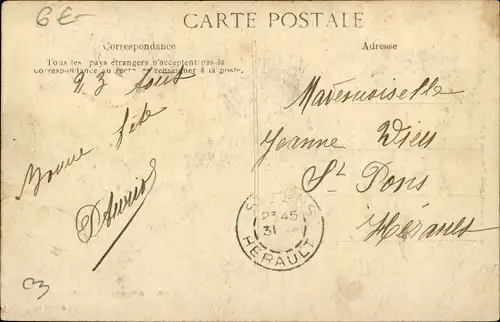 6 E-
CARTE POSTALE
Correspondance
Adresse
Tous les pays étrangers n'acceptent pas la
correspondance au recto se renseigner à la poste.
23 Aout
Bonne fête
Mademoiselle
Jeanne
St Pons
Hérault
23 45
31
HÉRAULT